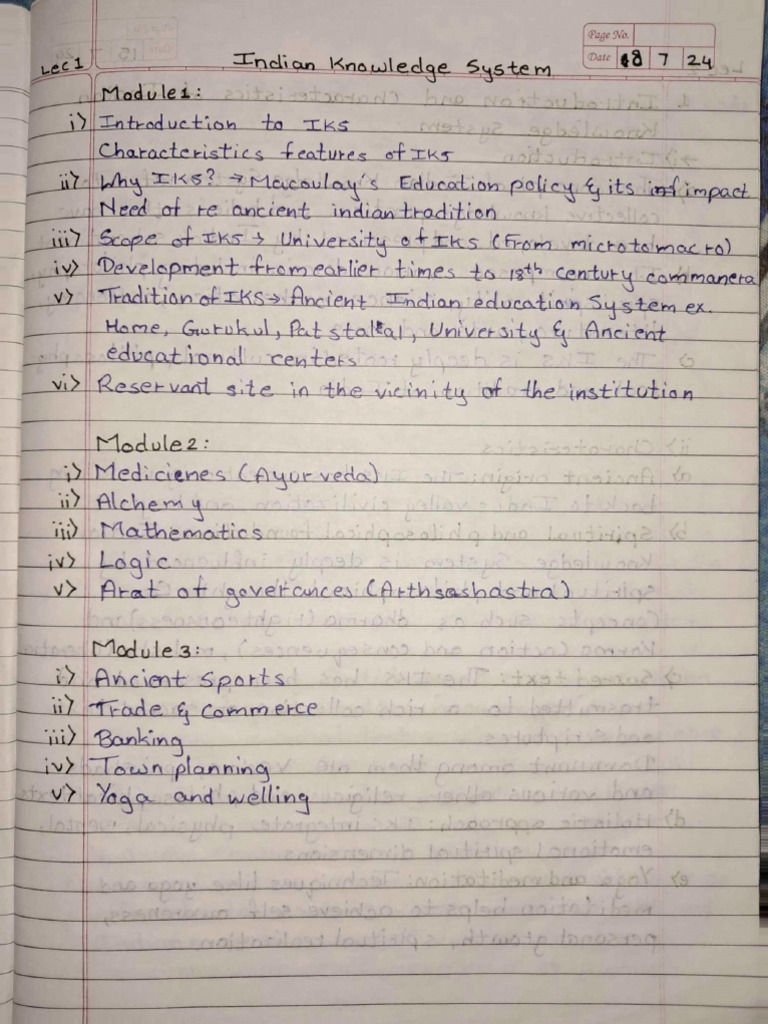 Page No.
Date 18 7 24
Lec 1 Indian Knowledge System
Module 1:
i) Introduction to IKS
Characteristics features of IKS
ii) Why IKS? → Macaulay's Education policy & its impact
Need of re ancient indian tradition
iii) Scope of IKS → University of IKS (From micro to macro)
iv) Development from earlier times to 18th century commanera
v) Tradition of IKS → Ancient Indian education System ex.
Home, Gurukul, University & Ancient
educational centers
vi) Reservant site in the vicinity of the institution
Module 2:
i) Medicienes (Ayurveda)
ii) Alchemy
iii) Mathematics
iv) Logic
v) Arat of goverances (Arthsashastra)
Module 3:
i) Ancient Sports
ii) Trade & Commerce
iii) Banking
iv) Town planning
v) Yoga and welling